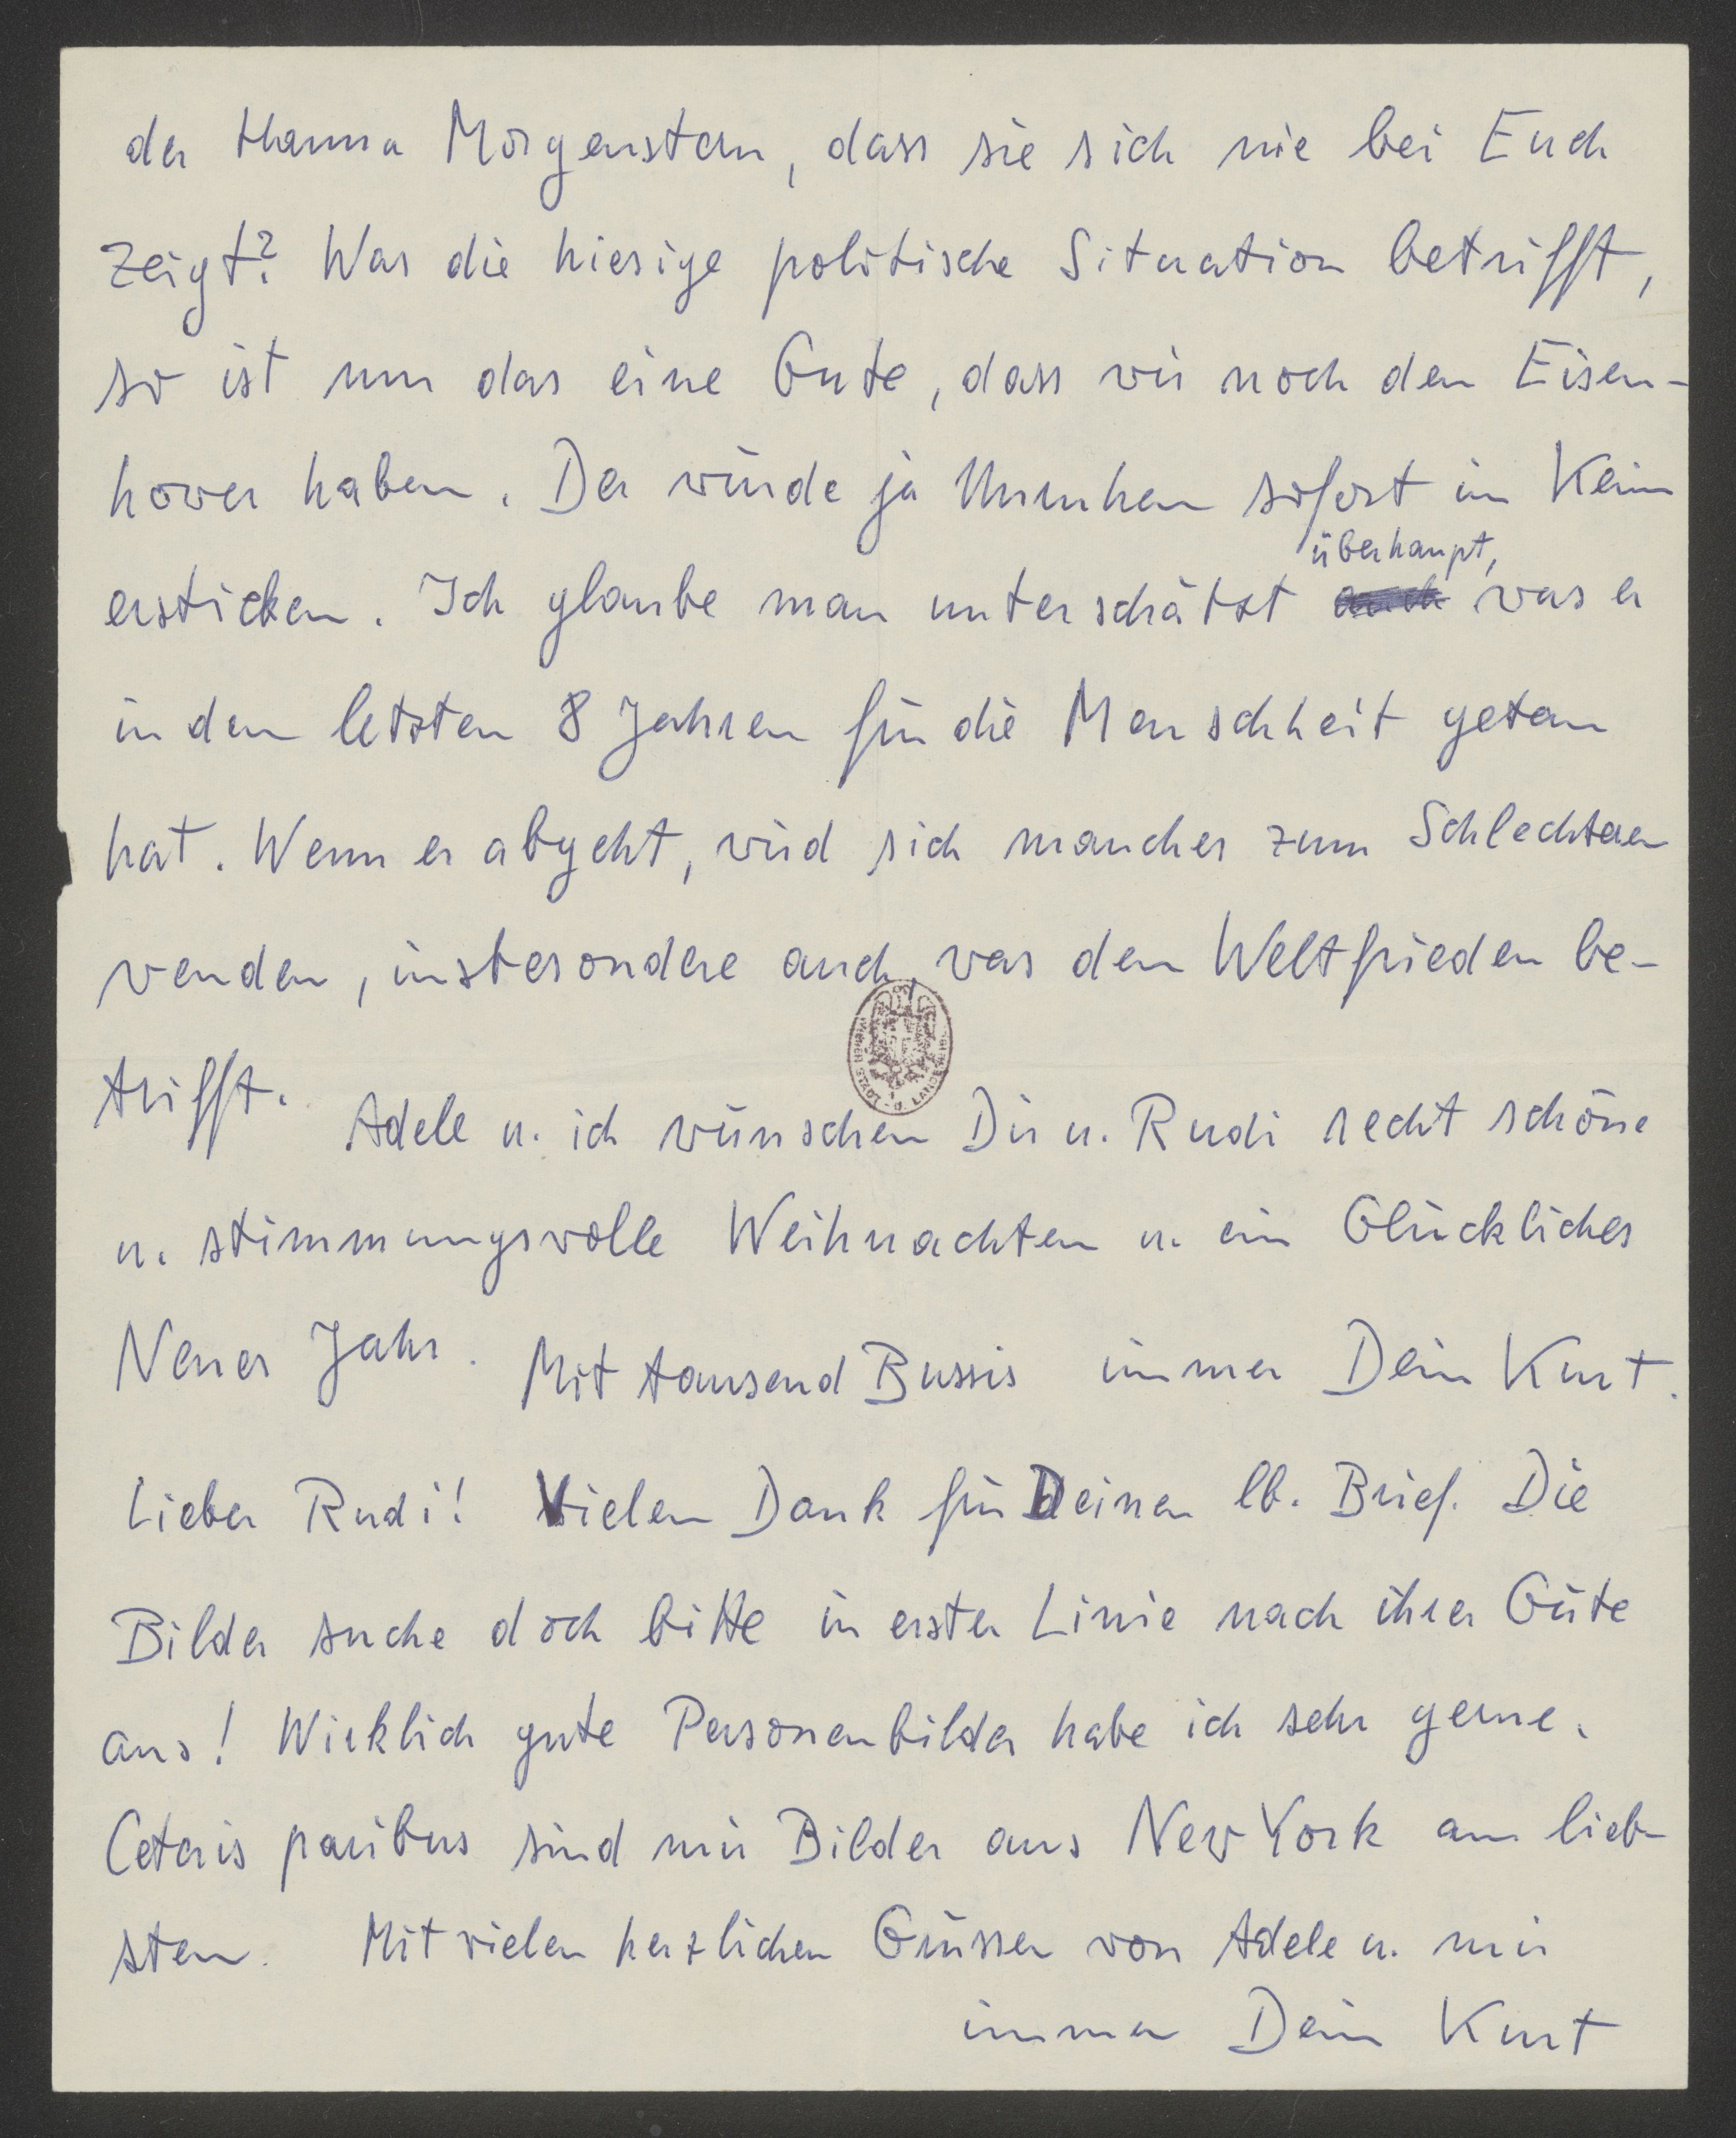 der Hanna Morgenstern, dass sie sich nie bei Euch
zeigt? Was die hiesige politische Situation betrifft,
so ist nur das eine Gute, dass wir noch den Eisen-
hower haben. Der würde ja Unruhen sofort im Keim
überhaupt,
ersticken. Ich glaube man unterschätzt auch was er
in den letzten 8 Jahren für die Menschheit getan
hat. Wenn er abgeht, wird sich manches zum Schlechteren
wenden, insbesondere auch, was den Weltfrieden be-
trifft. Adele u. ich wünschen Dir u. Rudi recht schöne
u. stimmungsvolle Weihnachten u. ein Glückliches
Neues Jahr. Mit tausend Bussis immer Dein Kurt.
Lieber Rudi! Vielen Dank für Deinen lb. Brief. Die
Bilder suche doch bitte in erster Linie nach ihrer Güte
aus! Wirklich gute Personenbilder habe ich sehr gerne.
Ceteris paribus sind mir Bilder aus New York am lieb-
sten. Mit vielen herzlichen Grüssen von Adele u. mir
immer Dein Kurt